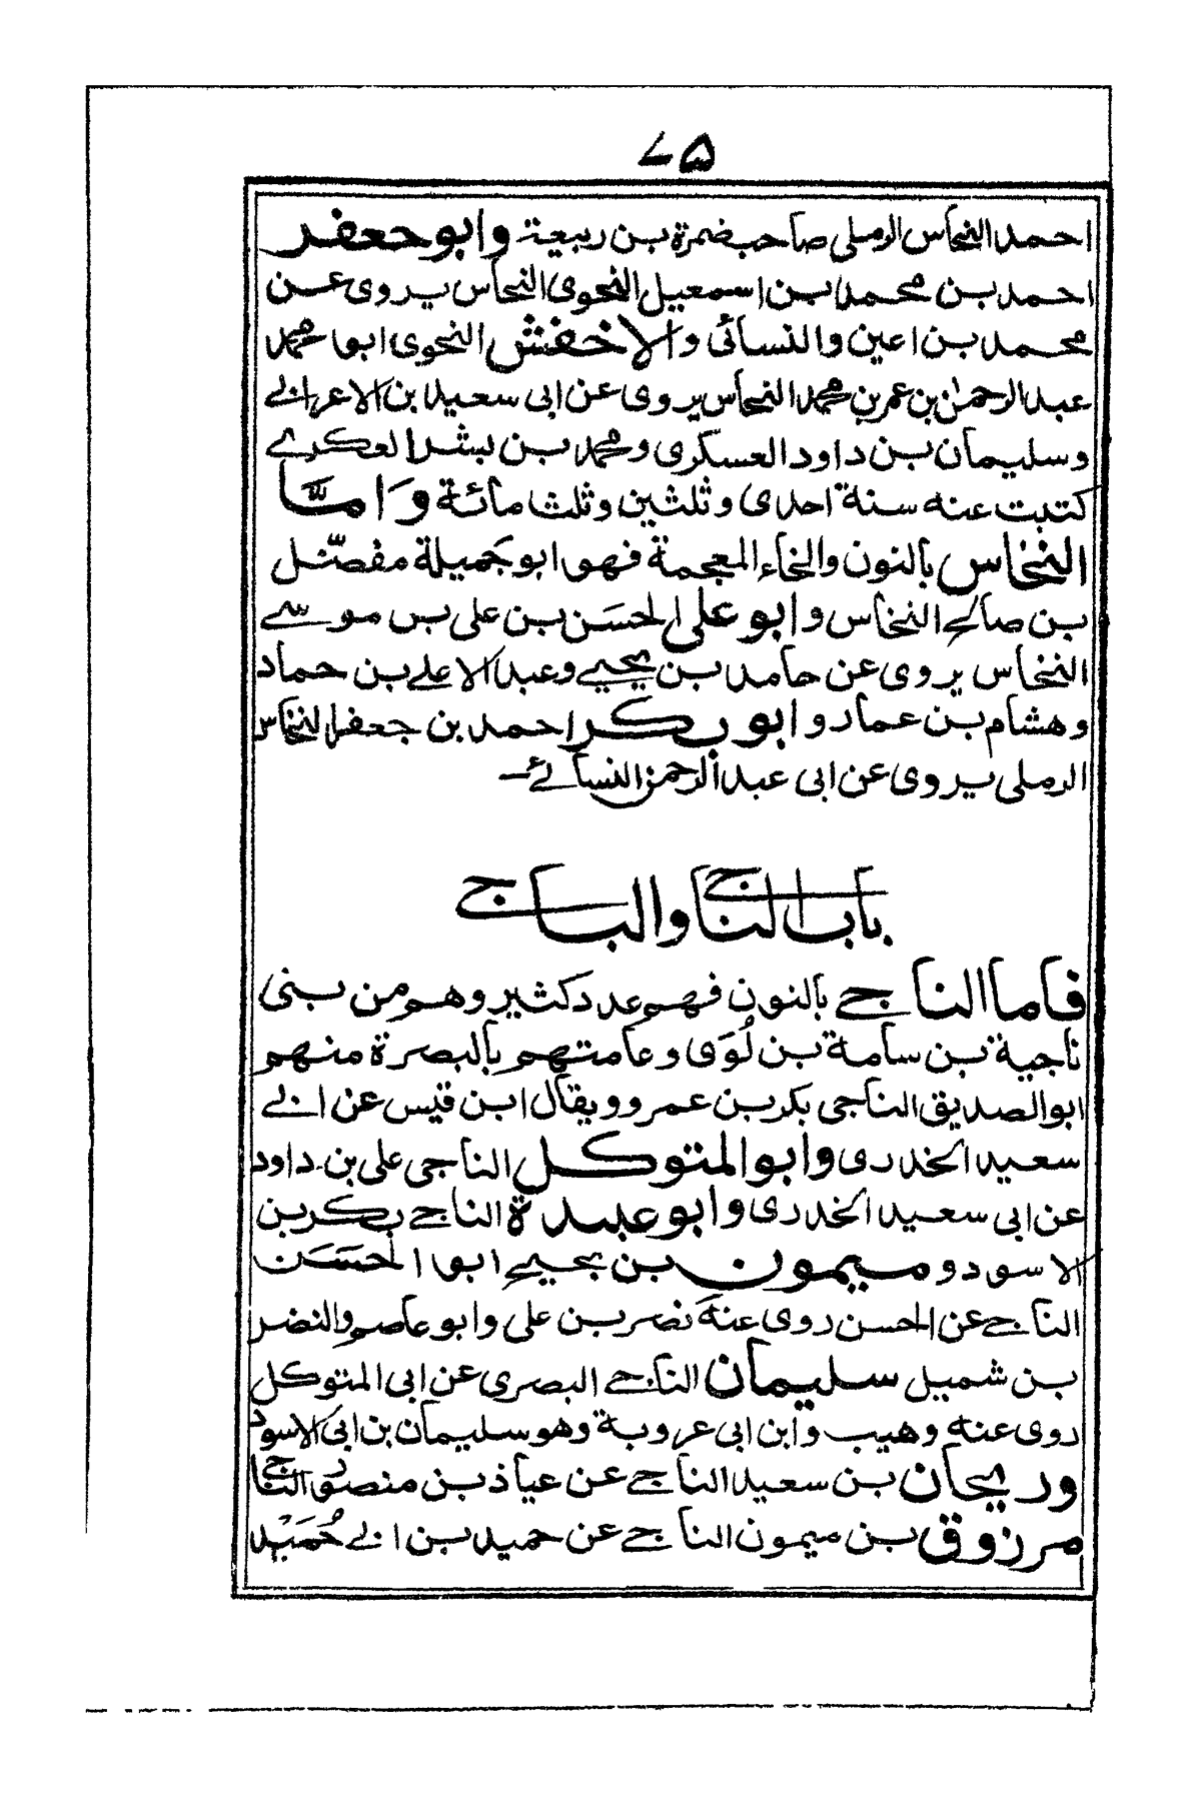 ٧٥
احمد النحاس الرملى صاحب ضمرة بن ربيعة وابو جعفر
احمد بن محمد بن اسمعيل النحوى النحاس يروى عن
محمد بن اعين والنسائى والاخفش النحوى ابو محمد
عبد الرحمن بن عمر بن محمد النحاس يروى عن ابى سعيد بن الاعرابى
وسليمان بن داود العسكرى ومحمد بن بشر العكرى
كتبت عنه سنة احدى وثلثين وثلث مائة وَامّا
النخاس بالنون والخاء المعجمة فهو ابو جميلة مفضّل
بن صالح النخاس وابو على الحسَن بن على بن موسى
النخاس يروى عن حامد بن يحيى وعبد الاعلى بن حماد
وهشام بن عمار وابو بكر احمد بن جعفر النخاس
الرملى يروى عن ابى عبد الرحمن النسائى
باب الناجى والباجى
فاما الناجى بالنون فهم عدد كثير وهم من بنى
ناجية بن سامة بن لُوَى وعامتهم بالبصرة منهم
ابو الصديق الناجى بكر بن عمرو ويقال ابن قيس عن ابى
سعيد الخدرى وابو المتوكل الناجى على بن داود
عن ابى سعيد الخدرى وابو عبيدة الناجى بكر بن
الاسود وميمون بن يحيى ابو الحسَن
الناجى عن الحسن روى عنه نصر بن على وابو عاصم والنضر
بن شميل سليمان الناجى البصرى عن ابى المتوكل
روى عنه وهيب وابن ابى عروبة وهو سليمان بن ابى الاسود
وريحان بن سعيد الناجى عن عباد بن منصور الناجى
مرزوق بن ميمون الناجى عن حميد بن ابى حُمَيْد